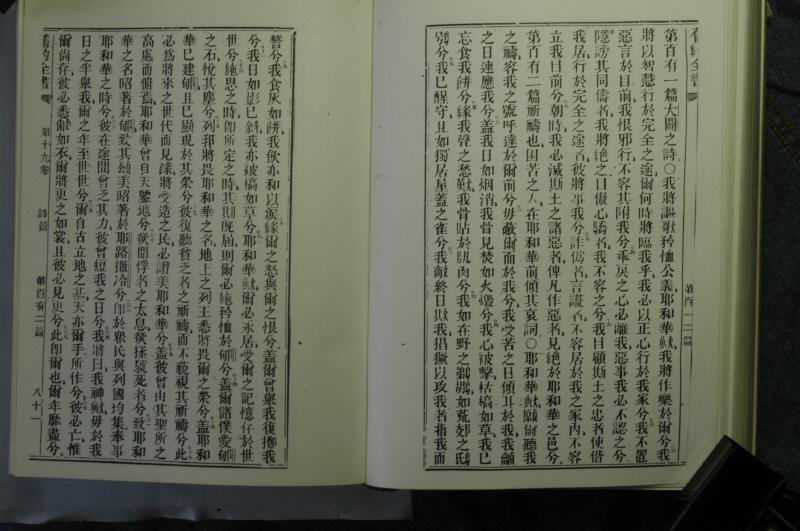 舊約全書
第百一二篇
第百有一篇大闢之詩〇我將謳歌矜恤公義耶和華歟我將作樂於爾兮我
將以智慧行於完全之途爾何時將臨我乎我必以正心行於我家兮我不置
惡言於目前我恨邪行不容其附我兮乖戾之心必離我惡事我必不認之兮
隱謗其同儔者我將絕之目傲心驕者我不容之兮我目顧斯土之忠者使偕
我居行於完全之途者彼將事我兮詐僞者言謊者不容居於我之家內不容
立我目前兮朝時我必滅斯土之諸惡者俾凡作惡者見絕於耶和華之邑兮
第百有二篇祈禱也困苦之人在耶和華前傾其哀詞〇耶和華歟願爾聽我
之禱容我之號呼達於爾前兮毋蔽爾面於我兮我受苦之日傾耳於我我籲
之日速應我兮蓋我日如烟消我骨見焚如火燬兮我心被擊枯槁如草我已
忘食我餅兮緣我聲之愁歎我骨貼於肌肉兮我如在野之鵜鶘如荒郊之鴟
鴞兮我已醒守且如獨居屋蓋之雀兮我敵終日欺我猖獗以攻我者指我而
誓兮我食灰如餅我飲亦和以淚緣爾之怒與爾之恨兮蓋爾曾舉我復擲我
兮我日如影已斜我亦被槁如草兮耶和華歟爾必永居爾之記憶存於世
世兮施恩之時卽所定之時其期旣屆則爾必施矜恤於郇兮蓋爾諸僕愛郇
之石悅其塵兮列邦將畏耶和華之名地上之列王悉將畏爾之榮兮蓋耶和
華已建郇且已顯現於其榮兮彼復聽貧乏者之祈禱而不藐視其祈禱兮此
必爲將來之世代而見錄將受造之民必讚美耶和華兮蓋彼曾由其聖所之
高處而俯焉耶和華曾自天鑒地兮欲聞俘者之太息欲拯就死者兮致耶和
華之名昭著於郇致其頌美昭著於耶路撒冷兮卽於衆民與列國均集奉事
耶和華之時兮彼在途間曾乏其力彼曾短我之日兮我將曰我神歟毋於我
日之半舉我爾之年至世世兮爾自古立地之基天亦爾手所作兮彼必亡惟
爾尙存彼必悉舊如衣爾將更之如裳且彼必見更兮此卽爾也爾年靡盡兮
舊約全書
第十九卷
詩篇
第百有二篇
八十一